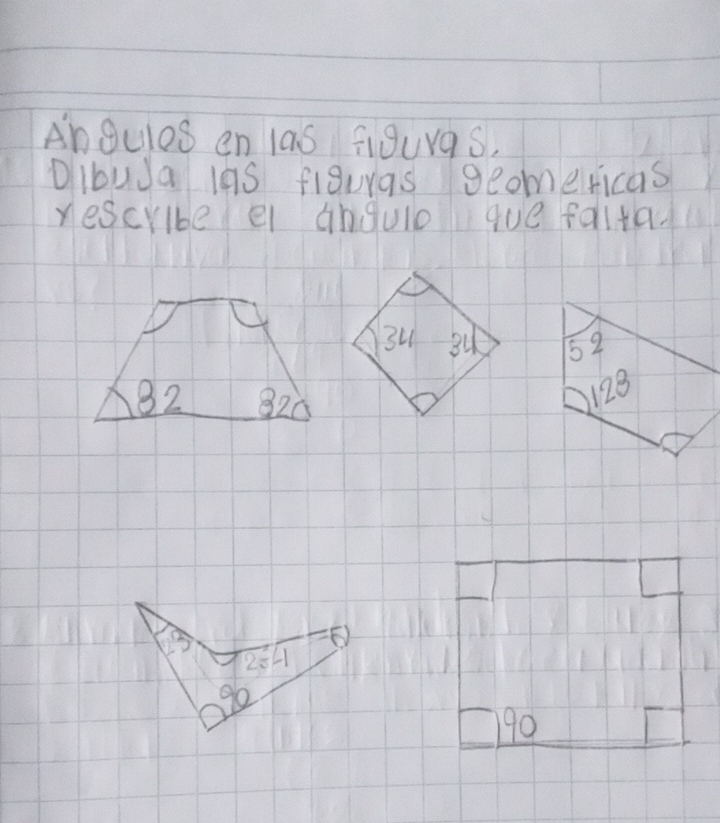 Angulos en las figuras.
Dibuja las figuras geometricas
y escribe el ángulo que falta.
34 34
52
82 82
128
254
90
90